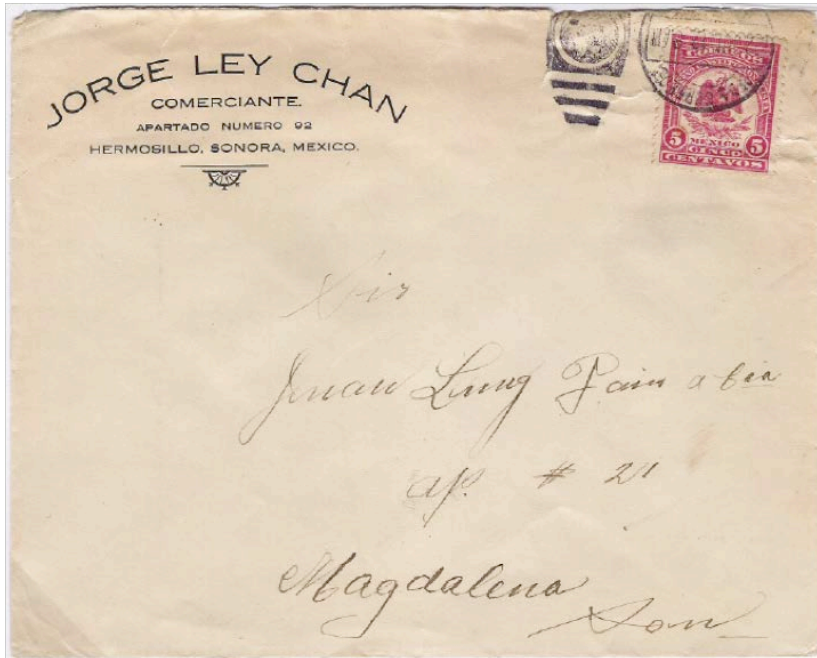 JORGE LEY CHAN
COMERCIANTE.
APARTADO NUMERO 92
HERMOSILLO, SONORA, MEXICO.
CORREOS
5 MEXICO 5
CINCO
CENTAVOS
Sir
Juan Lung Tain
ap. # 21
Magdalena
Son